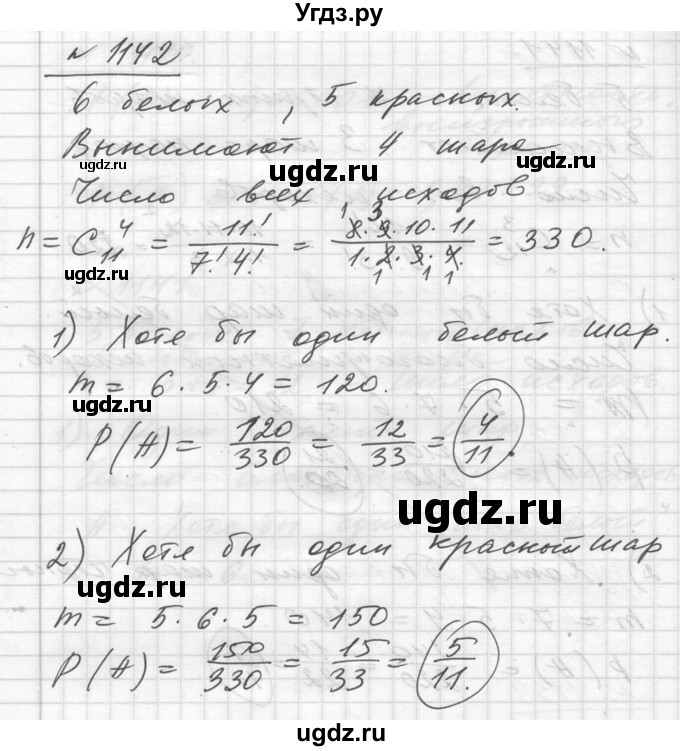 Угдз.ру
№ 1142
6 белых, 5 красных.
Вынимают 4 шара
ugdz.ru ugdz.ru
Число всех исходов
n = C₁₁⁴ = 11! / 7! 4! = 8·9·10·11 / 1·2·3·4 = 330.
ugdz.ru ugdz.ru
1) Хотя бы один белый шар.
m = 6·5·4 = 120.
ugdz.ru
P(A) = 120/330 = 12/33 = 4/11.
ugdz.ru
2) Хотя бы один красный шар
ugdz.ru
m = 5·6·5 = 150
P(A) = 150/330 = 15/33 = 5/11.
ugdz.ru ugdz.ru